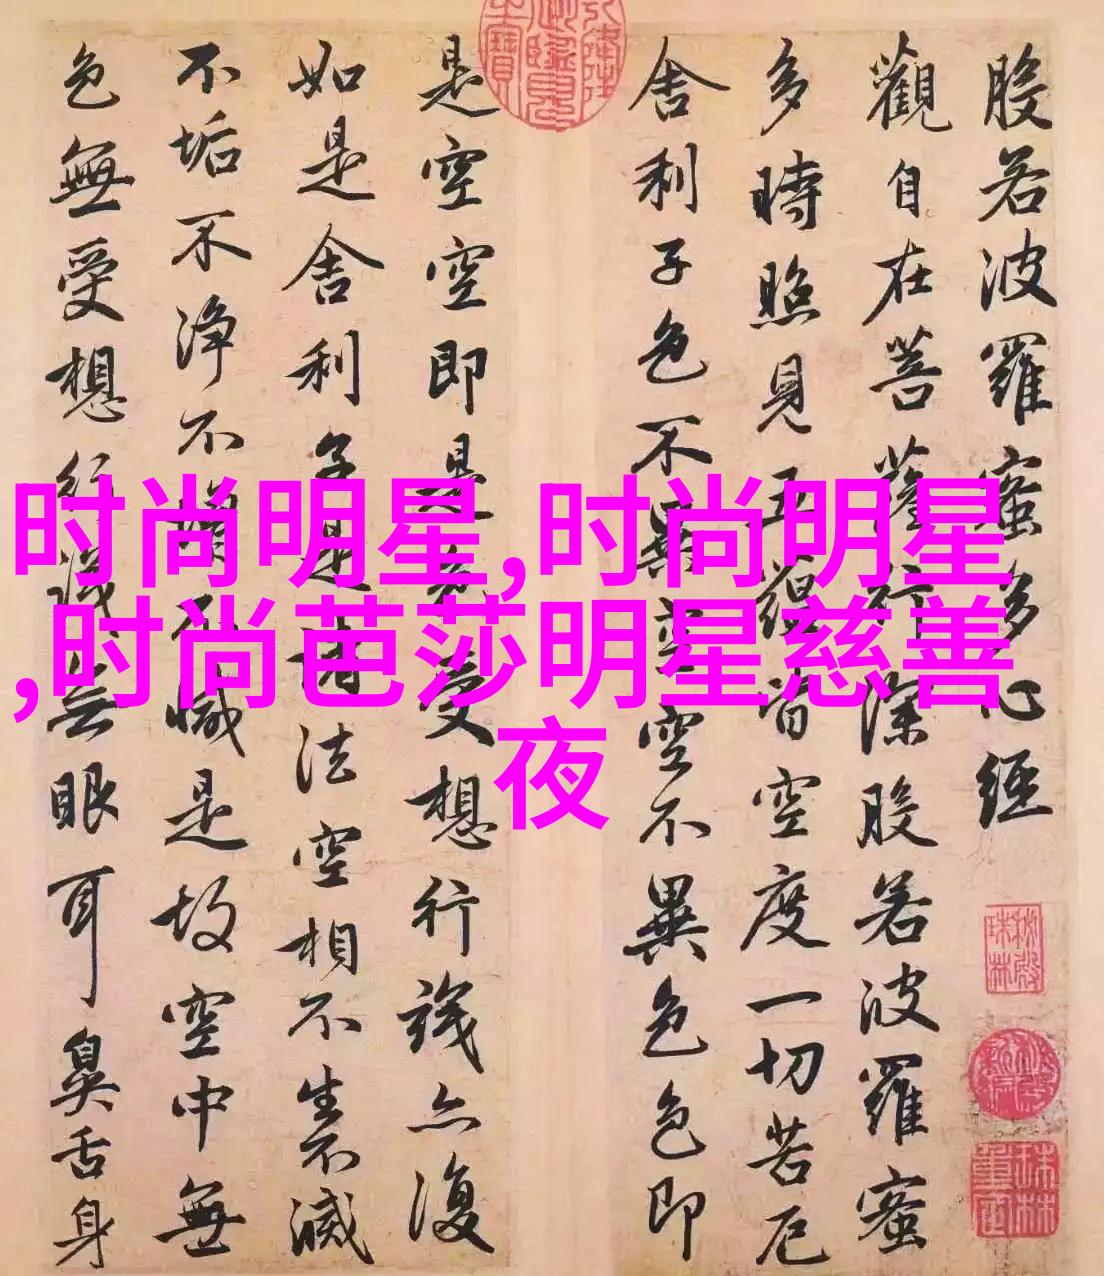 般若波羅蜜多心經
觀自在菩薩行深般若波羅蜜
多時照見五蘊皆空度一切苦厄
舍利子色不異空空不異色色即
是空空即是色受想行識亦復
如是舍利子是諸法空相不生不滅
不垢不淨不增不減是故空中無
色無受想行識无眼耳鼻舌身
时尚明星,时尚明星
,时尚芭莎明星慈善
夜